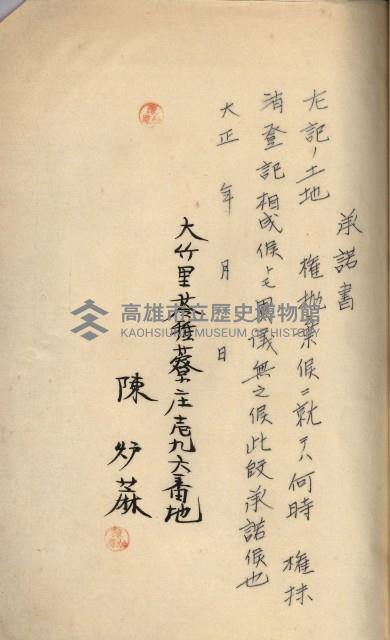 承諾書
左記ノ土地　権抛棄候ニ就テハ何時　権抹
消登記相成候トモ異議無之候此段承諾候也
大正　年　月　日
大竹里苓雅寮庄壱九六番地
陳炉蔴
高雄市立歷史博物館
KAOHSIUNG MUSEUM OF HISTORY